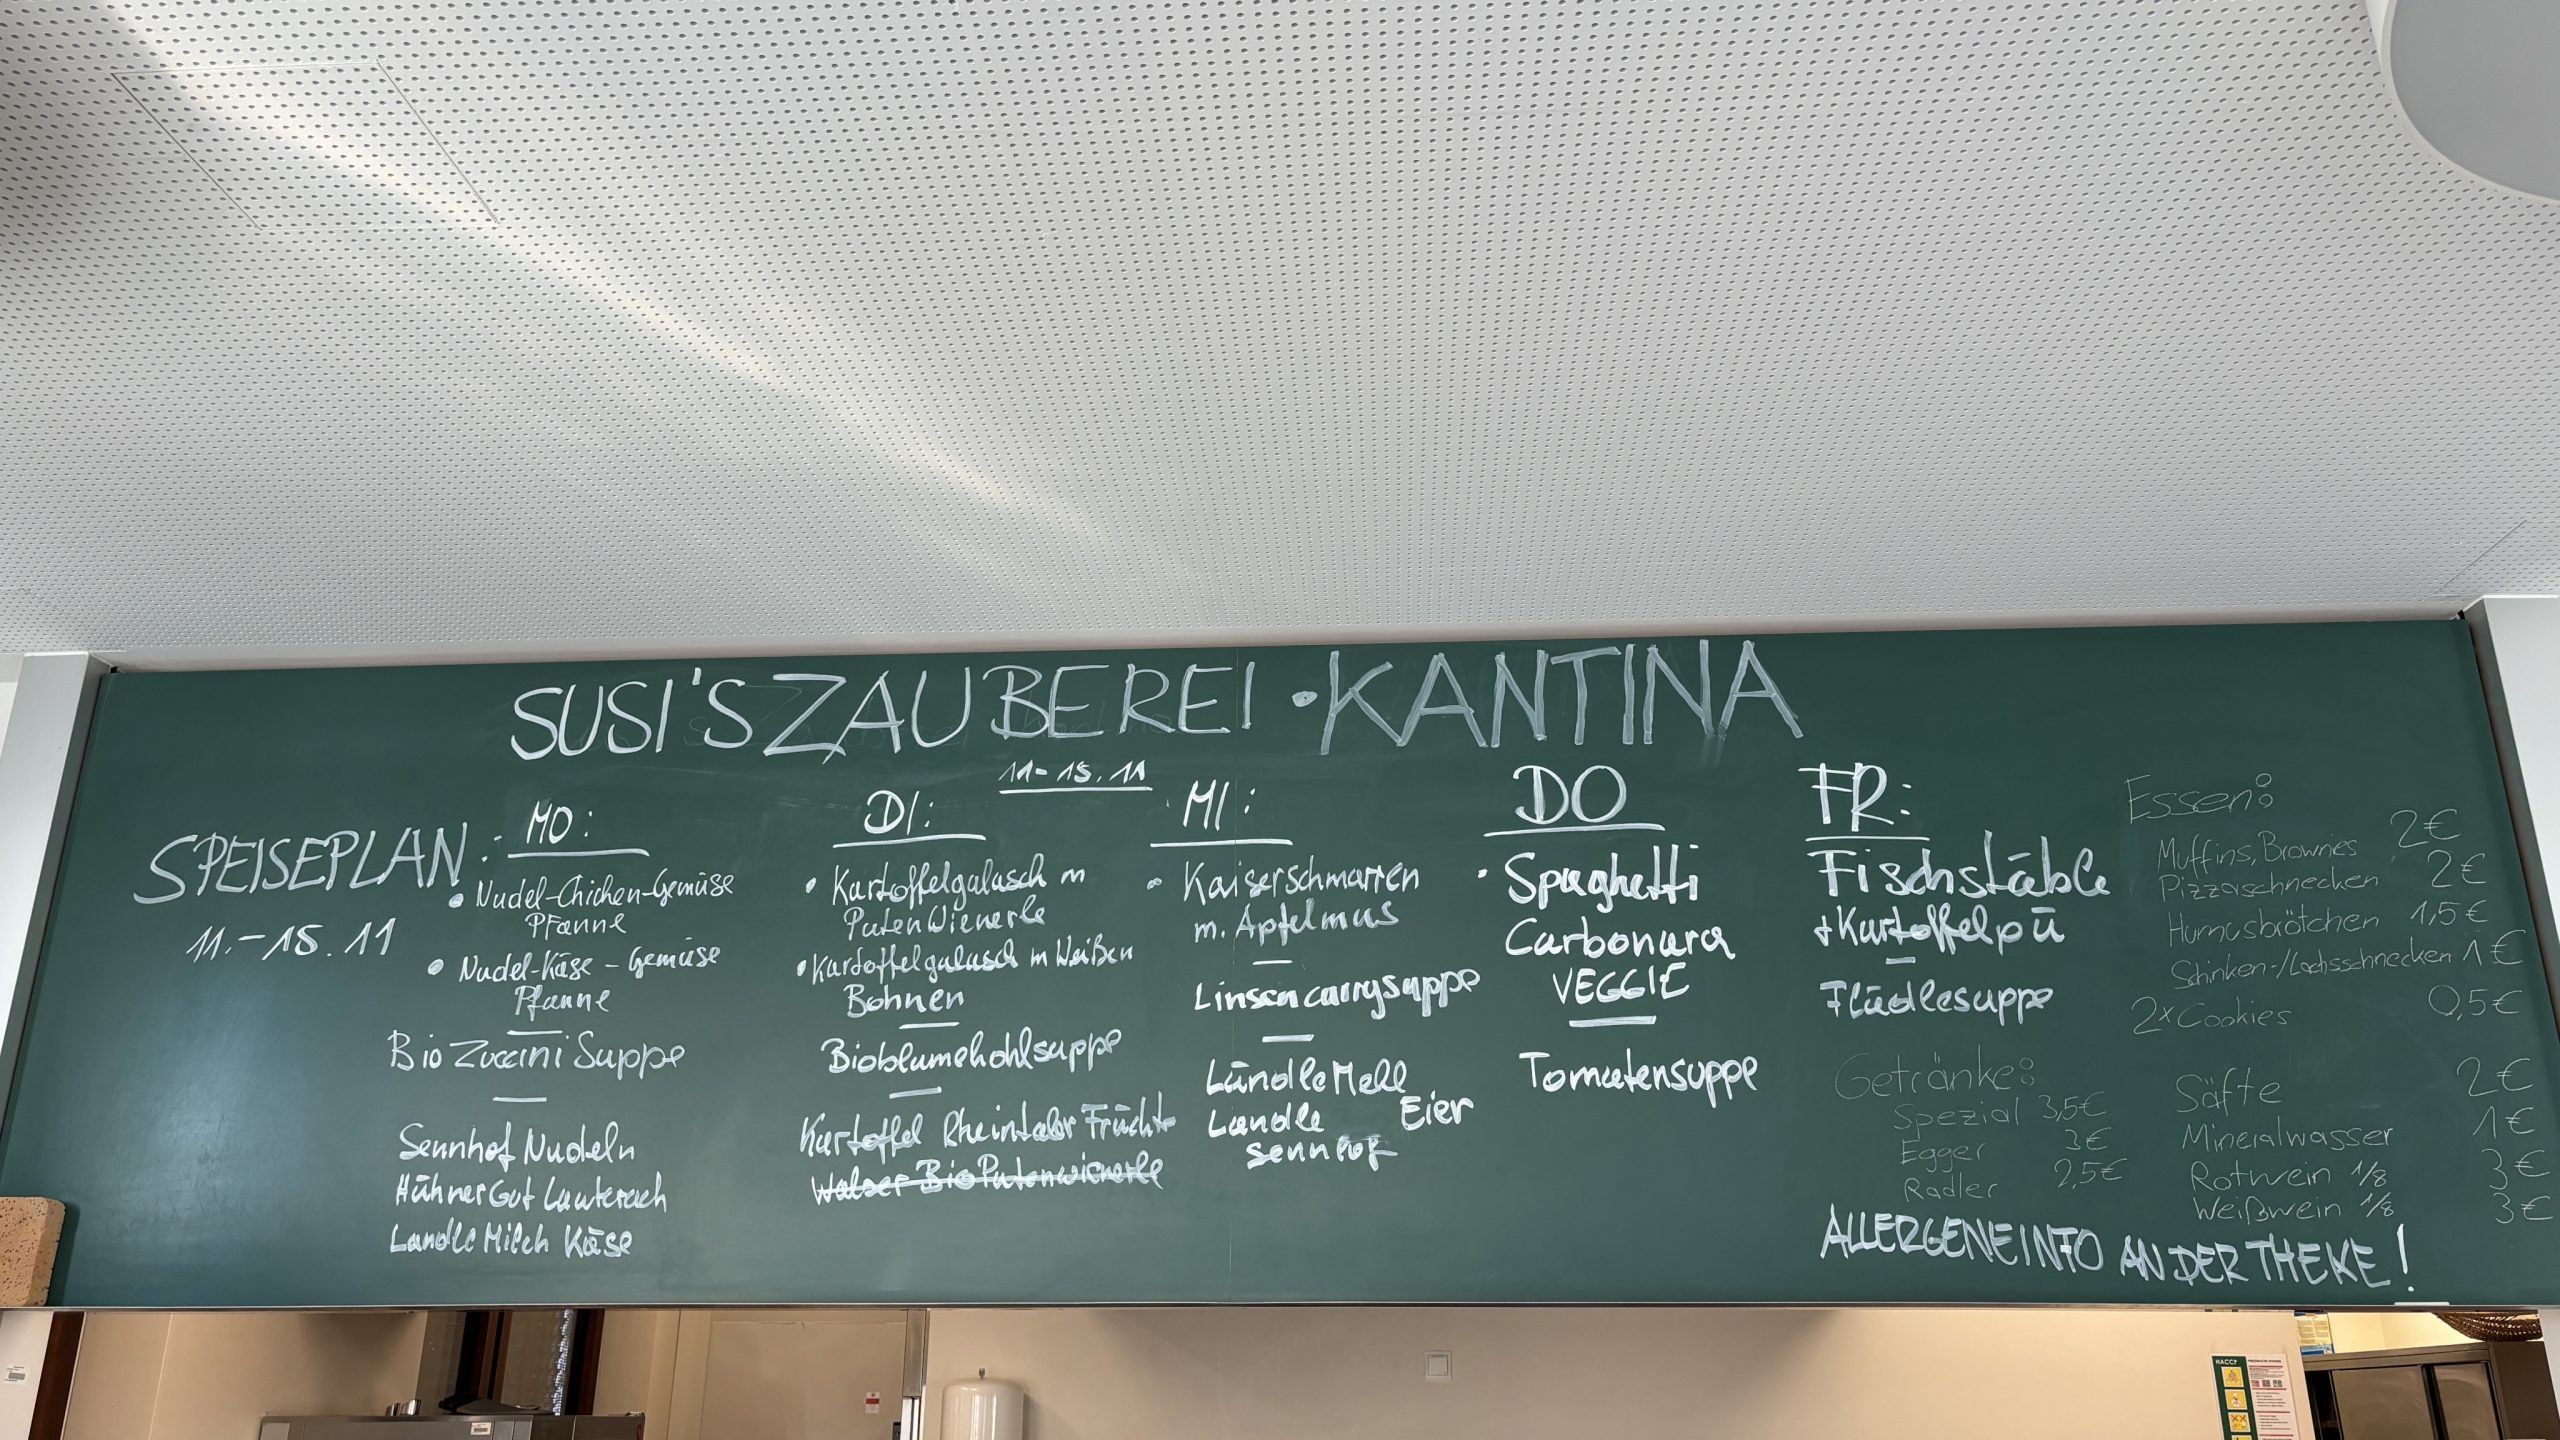 SUSI'S ZAUBEREI • KANTINA
11-15.11
SPEISEPLAN:
11.-15.11
MO:
• Nudel-Chicken-Gemüse
Pfanne
• Nudel-Käse-Gemüse
Pfanne
Bio Zuccini Suppe
Sennhof Nudeln
Hühner Gut Lauterach
Ländle Milch Käse
DI:
• Kartoffelgulasch m
Puten Wienerle
• Kartoffelgulasch m Weißen
Bohnen
Bioblumekohlsuppe
Kartoffel Rheintaler Früchte
Walser Bio Putenwienerle
MI:
• Kaiserschmarren
m. Apfelmus
Linsencurrysuppe
Ländle Mehl
Ländle Eier
Sennhof
DO
• Spaghetti
Carbonara
VEGGIE
Tomatensuppe
FR:
Fischstäble
+Kartoffelpü
Flädlesuppe
Essen:
Muffins, Brownies 2€
Pizzaschnecken 2€
Humusbrötchen 1,5€
Schinken-/Lachsschnecken 1€
2x Cookies 0,5€
Getränke:
Spezial 3,5€
Egger 3€
Radler 2,5€
Säfte 2€
Mineralwasser 1€
Rotwein 1/8 3€
Weißwein 1/8 3€
ALLERGENEINFO AN DER THEKE!
HACCP